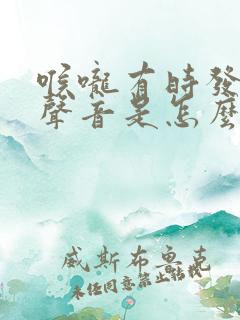 喉嚨有時發
聲音是怎麼
威斯布魯克
未经同意禁止转载